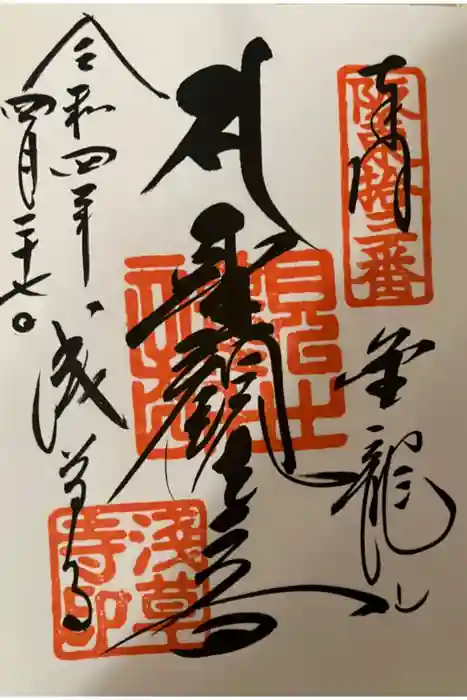 奉拝
阪東拾三番
金龍山
聖観世音
浅草寺
浅草寺印
令和四年
四月二十七日